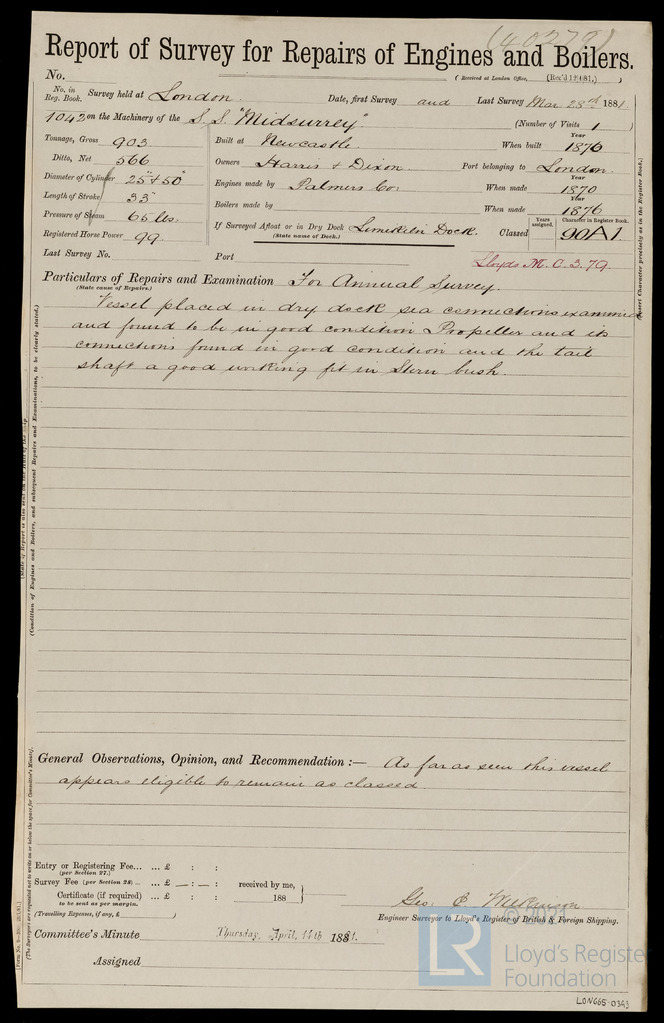 (40279)
Report of Survey for Repairs of Engines and Boilers.
No.
(Received at London Office,
No. in Reg. Book.
Survey held at London.
Date, first Survey and Last Survey Mar. 28th 1881.
1042 on the Machinery of the S.S. "Midsurrey"
(Number of Visits 1)
Tonnage, Gross 903
Ditto, Net 566
Diameter of Cylinder 25" & 50"
Length of Stroke 33"
Pressure of Steam 65 lbs.
Registered Horse Power 99
Built at Newcastle.
Year
When built 1876
Owners Harris & Dixon.
Port belonging to London.
Engines made by Palmers Co:
Year
When made 1870
Boilers made by
Year
When made 1876
If Surveyed Afloat or in Dry Dock Limekiln Dock.
(State name of Dock.)
Classed
Years assigned.
Character in Register Book.
90A1
Last Survey No.
Port
Lloyds M.C. 3.79.
Particulars of Repairs and Examination For Annual Survey.
(State cause of Repairs.)
Vessel placed in dry dock sea connections examined
and found to be in good condition Propeller and its
connections found in good condition and the tail
shaft a good working fit in Stern bush.
(Condition of Engines and Boilers, and subsequent Repairs and Examinations, to be clearly stated.)
General Observations, Opinion, and Recommendation :— As far as seen this vessel
appears eligible to remain as classed.
Entry or Registering Fee... ... £ : :
(per Section 27.)
Survey Fee (per Section 28) ... £ — : — :
Certificate (if required) ... £ : :
to be sent as per margin.
(Travelling Expenses, if any, £ )
received by me,
188
Geo. C. Wilkinson
Engineer Surveyor to Lloyd's Register of British & Foreign Shipping.
Committee's Minute Thursday, April, 14th 1881.
Assigned
© 2021
LR
Lloyd's Register
Foundation
LON665-0393